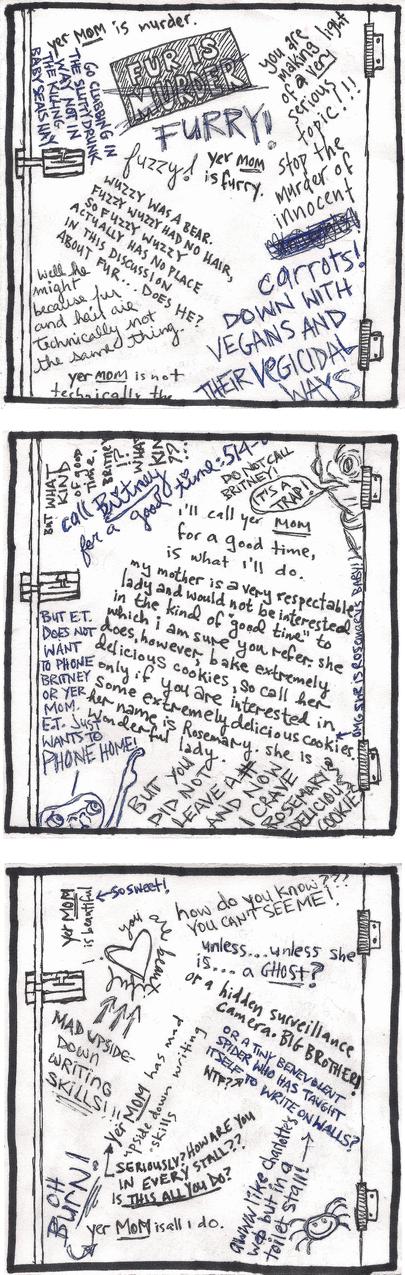 yer MOM is murder.
GO CLUBBING IN
THE SLUTTY DRUNK
WAY NOT IN
THE KILLING
BABY SEALS WAY
FUR IS
MURDER
FURRY!
you are
making light
of a very
serious
topic!!!
stop the
murder of
innocent
carrots!
fuzzy!
yer mom
is furry.
WUZZY WAS A BEAR.
FUZZY WUZZY HAD NO HAIR,
SO FUZZY WUZZY
ACTUALLY HAS NO PLACE
IN THIS DISCUSSION
ABOUT FUR... DOES HE?
Well he
might
because fur
and hair are
technically not
the same thing.
DOWN WITH
VEGANS AND
THEIR VEGICIDAL
WAYS
yer MOM is not
technically the
BUT WHAT
KIND
of good
time,
Britney
!?!
WHAT
KIN
??
call Britney
for a good time: 514-
DO NOT CALL
BRITNEY!
IT'S A
TRAP!
i'll call yer MOM
for a good time,
is what i'll do.
my mother is a very respectable
lady and would not be interested
in the kind of good time" to
which i am sure you refer. she
does, however, bake extremely
delicious cookies. So call her
only if you are interested in
some extremely delicious cookies
her name is Rosemary. she is a
wonderful lady.
OMG SHE IS ROSEMARY'S BABY!
BUT E.T.
DOES NOT
WANT
TO PHONE
BRITNEY
OR YER
MOM.
E.T. JUST
WANTS TO
PHONE HOME!
BUT YOU
DID NOT
LEAVE A #
AND NOW
I CRAVE
ROSEMARY'S
DELICIOUS
COOKIES
yer MOM
is beautiful
←SO SWEET!
you
are
beauty
how do you know???
YOU CAN'T SEE ME!!
unless...unless she
is... a GHOST?
or a hidden surveillance
camera. BIG BROTHER!
OR A TINY BENEVOLENT
SPIDER WHO HAS TAUGHT
ITSELF TO WRITE ON WALLS?
WTF??
MAD UPSIDE-
DOWN
WRITING
SKILLS!!!
yer MOM has mad
upside down writing
skills
SERIOUSLY? HOW ARE YOU
IN EVERY STALL??
IS THIS ALL YOU DO?
OOH
BURN!
yer MOM is all i do.
awww like charlotte's
web but in a
toilet stall!